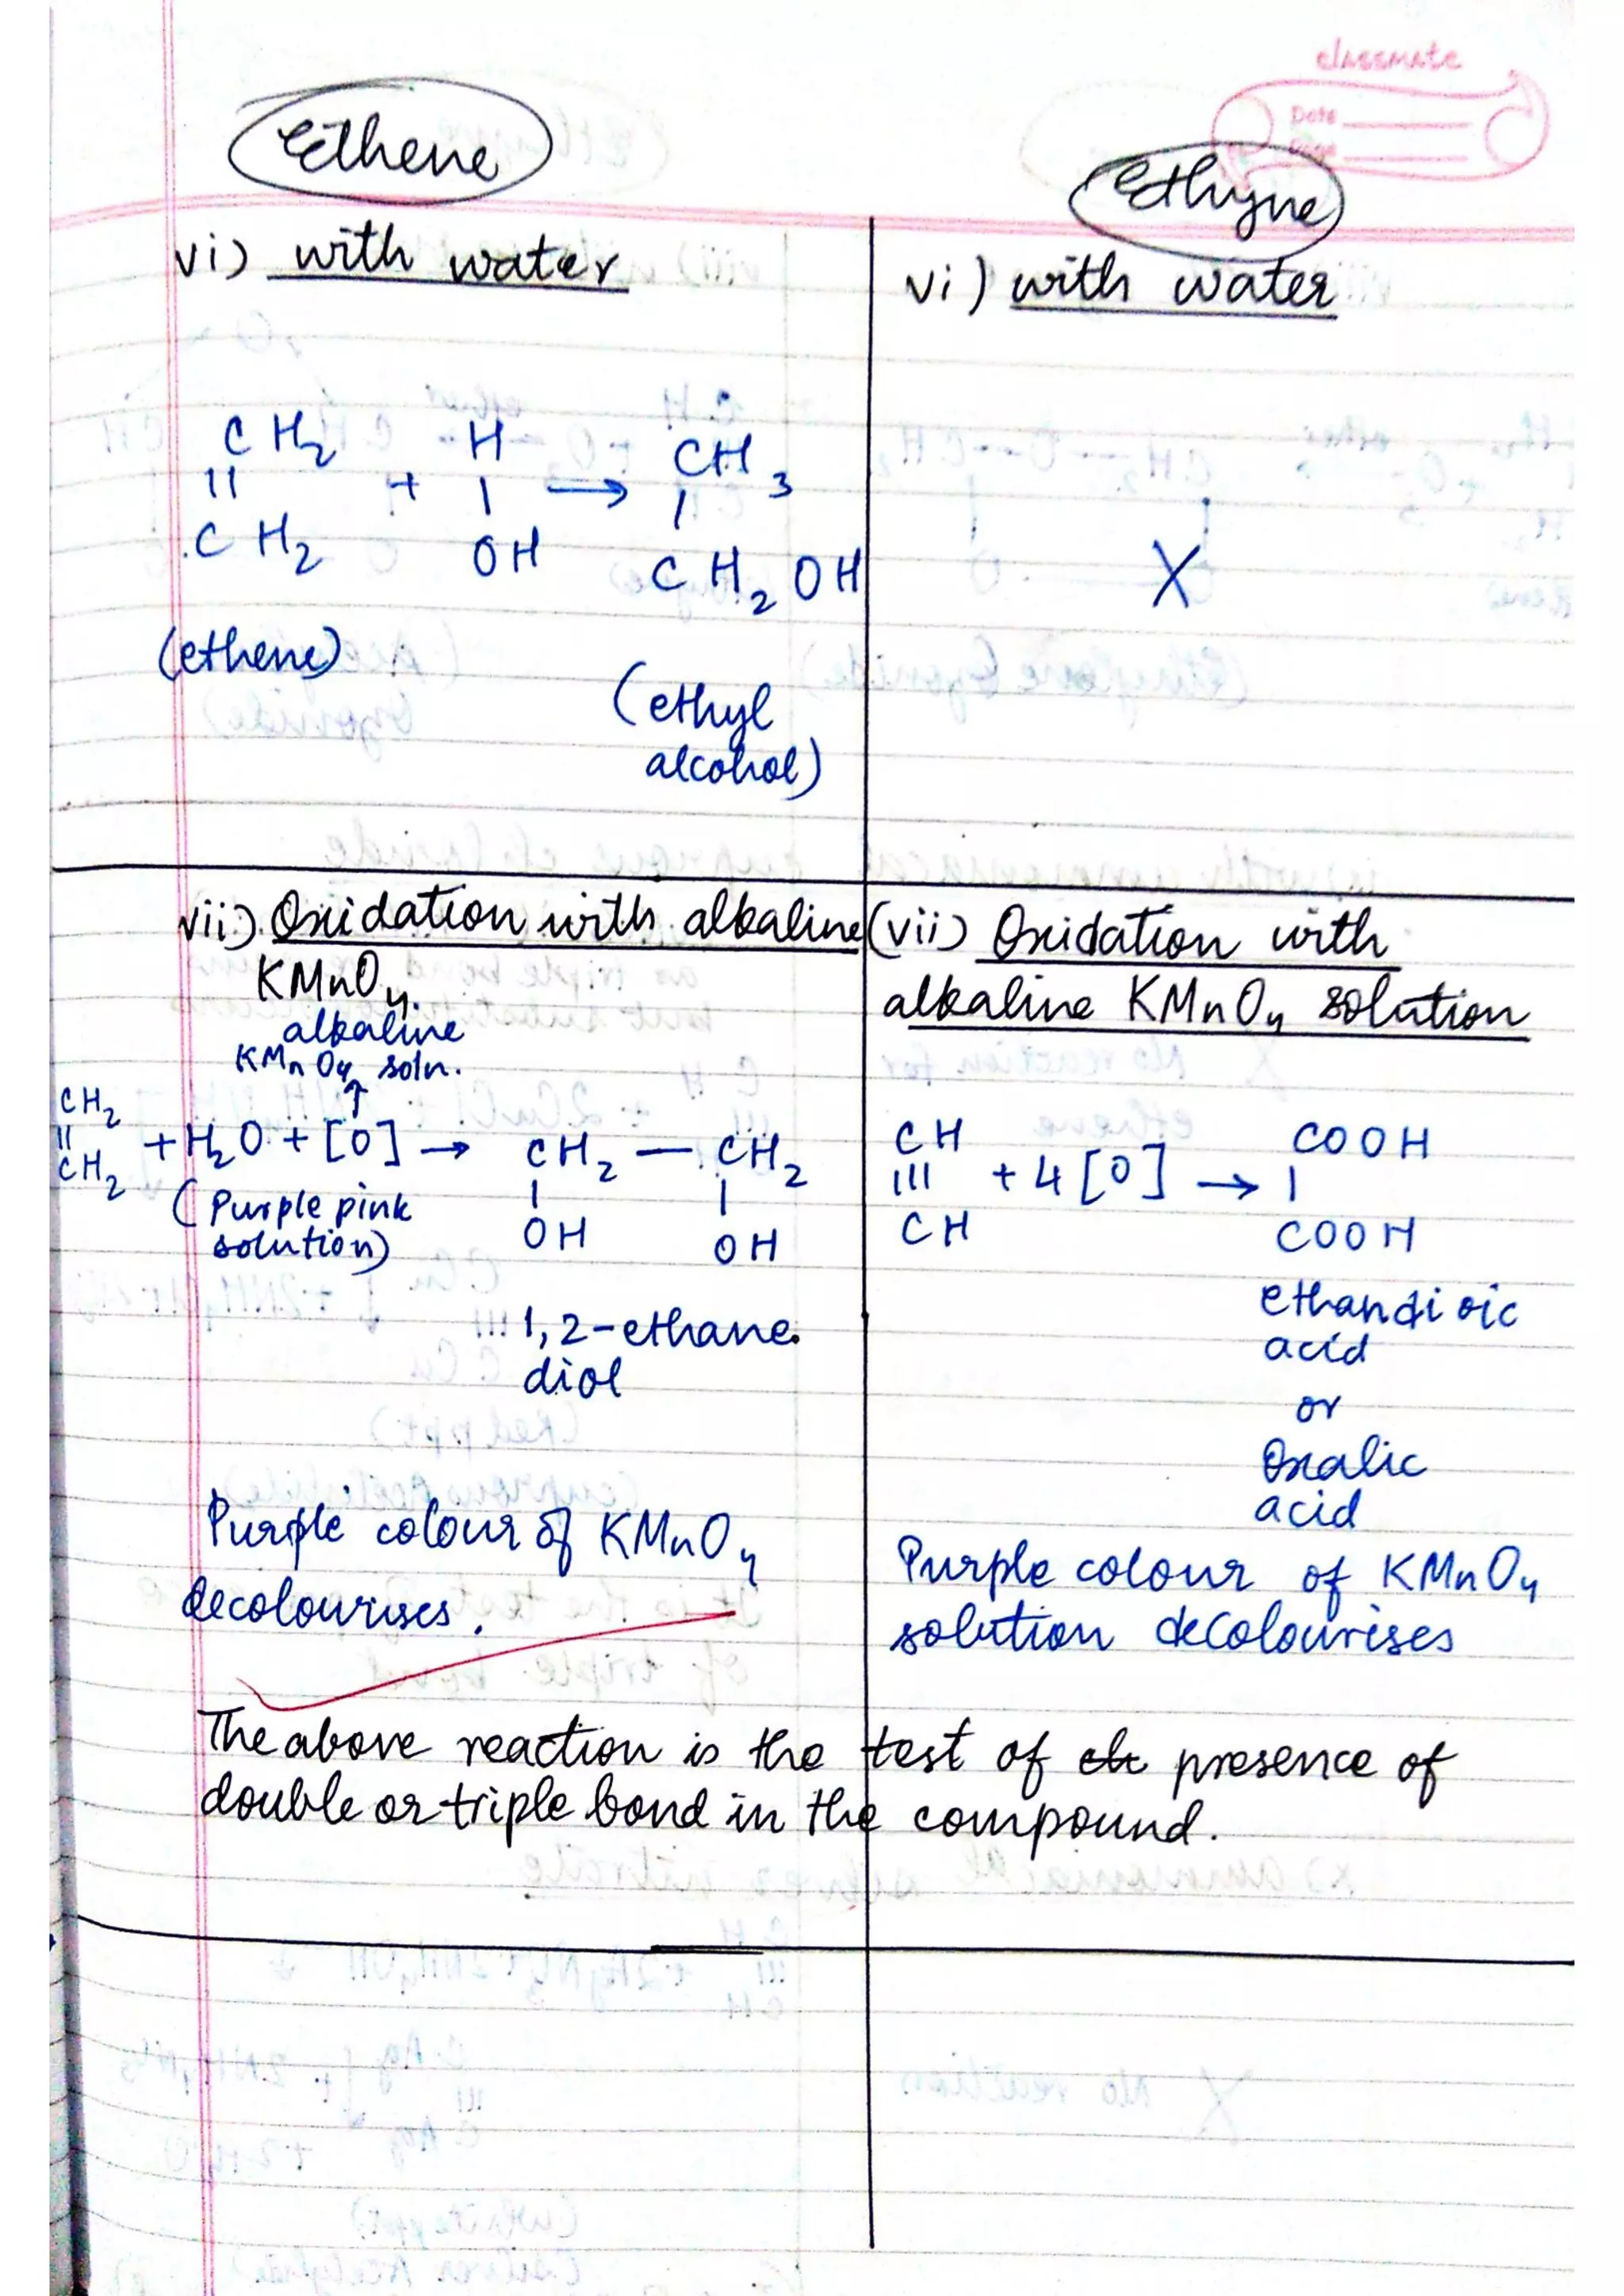 classmate
Date
Page
Ethene
Ethyne
vi) with water
CH2 H CH3
|| + | → |
CH2 OH CH2OH
(ethene)
(ethyl
alcohol)
vi) with water
X
vii) Oxidation with alkaline
KMnO4.
alkaline
KMnO4 soln.
↑
CH2
|| + H2O + [O] → CH2 — CH2
CH2 | |
(Purple pink OH OH
solution)
1,2-ethane
diol
Purple colour of KMnO4
decolourises.
(vii) Oxidation with
alkaline KMnO4 solution
CH COOH
||| + 4[O] → |
CH COOH
ethandioic
acid
or
Oxalic
acid
Purple colour of KMnO4
solution decolourises
The above reaction is the test of presence of
double or triple bond in the compound.